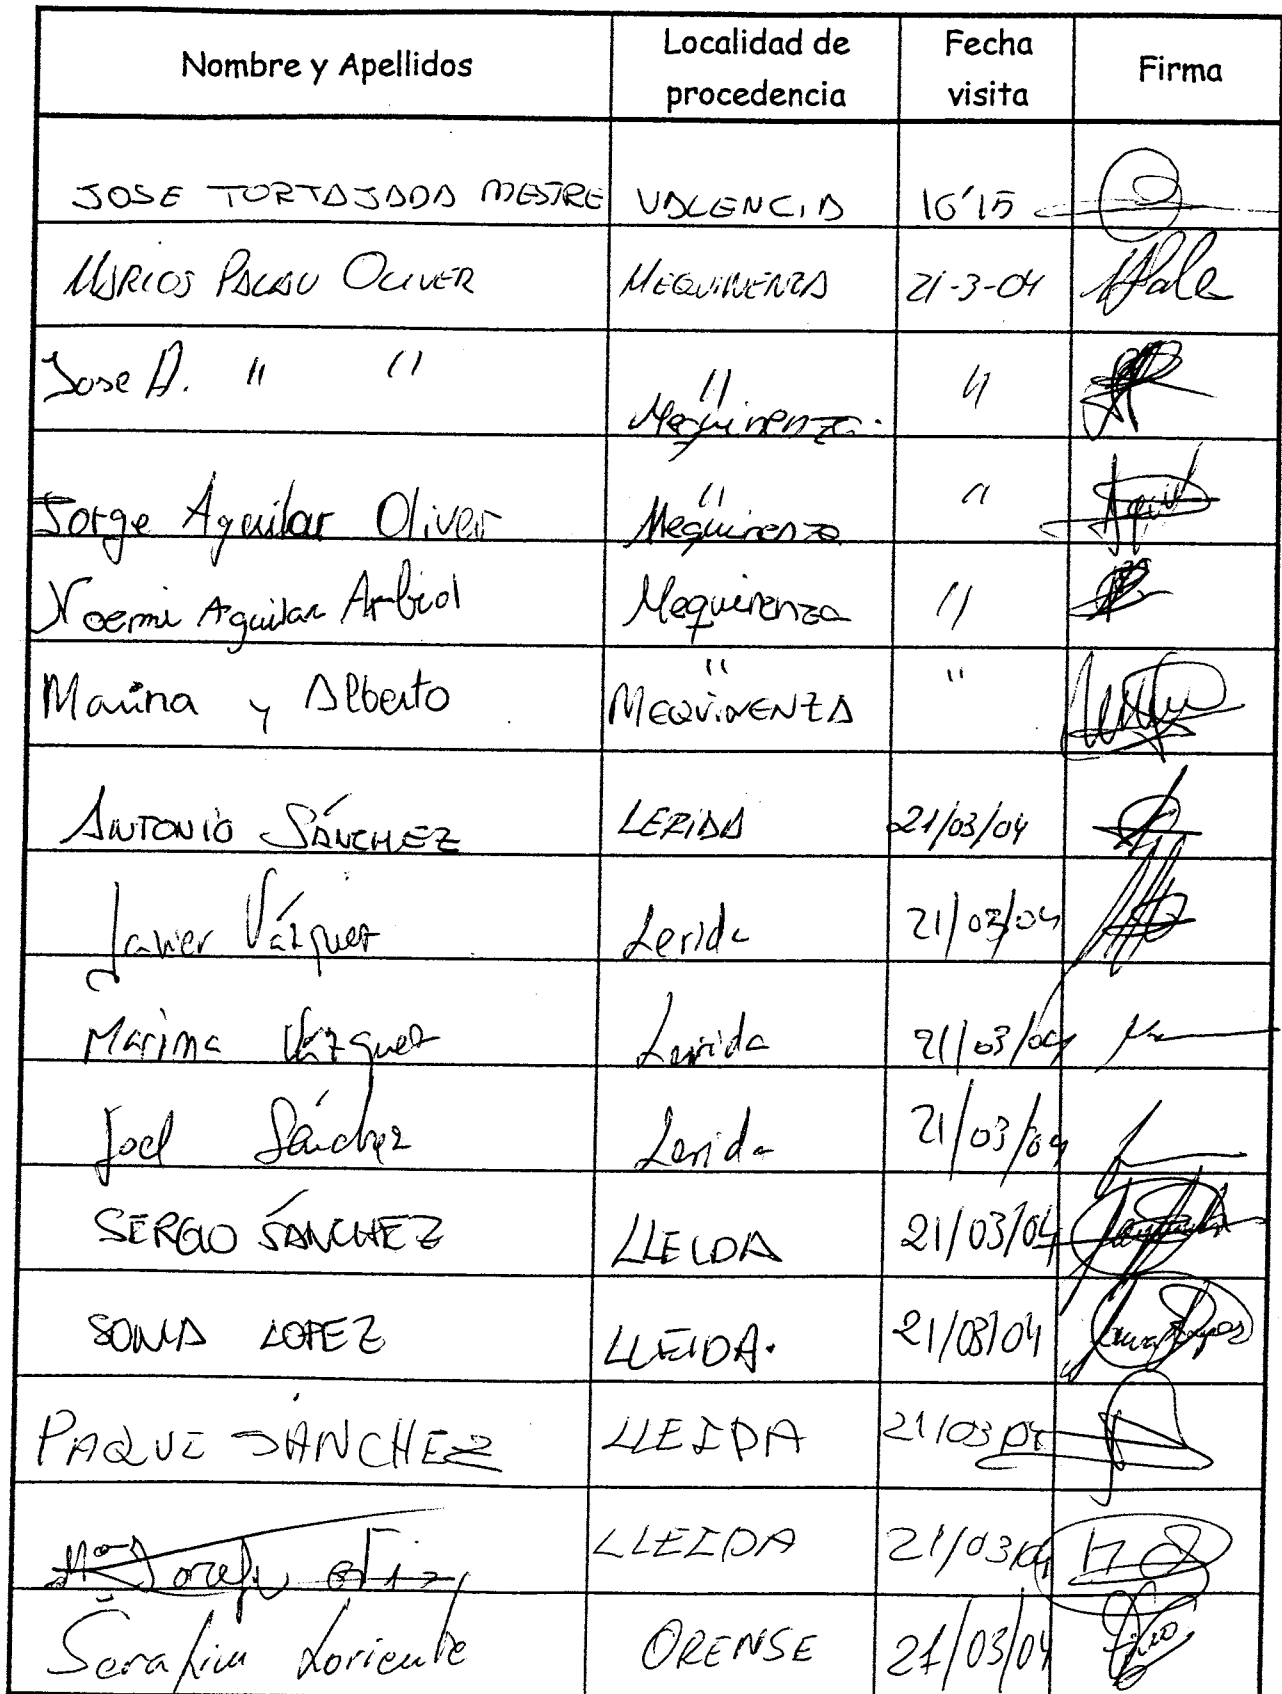 Nombre y Apellidos Localidad de procedencia Fecha visita Firma
JOSE TORTAJADA MESTRE VALENCIA 16'15
MARIOS PALAU OLIVER MEQUINENZA 21-3-04
Jose A. " " " Mequinenza. "
Jorge Aguilar Oliver " Mequinenza "
Noemi Aguilar Arbiol Mequinenza "
Marina y Alberto " MEQUINENZA "
ANTONIO SÁNCHEZ LERIDA 21/03/04
Javier Vázquez Lerida 21/03/04
Marina Vázquez Lerida 21/03/04
Joel Sánchez Lerida 21/03/04
SERGIO SÁNCHEZ LLEIDA 21/03/04
SONIA LOPEZ LLEIDA. 21/03/04
PAQUI SÁNCHEZ LLEIDA 21/03/04
Mª Josefa Ortiz LLEIDA 21/03/04
Serafin Loriente ORENSE 21/03/04